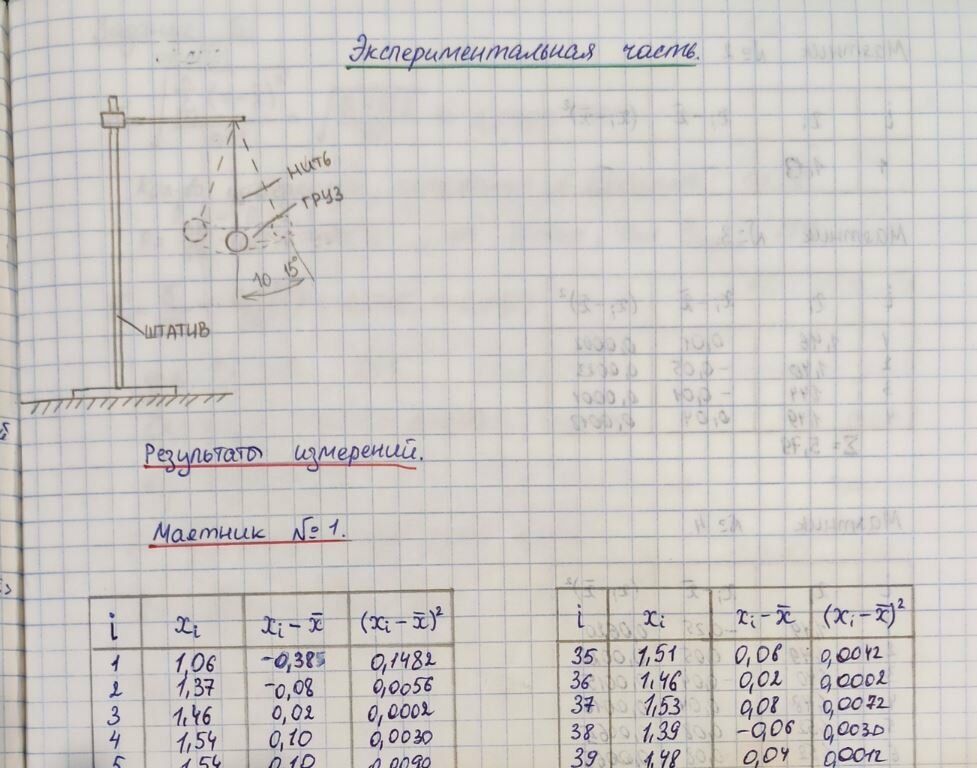 Экспериментальная часть.
нить
груз
10 15°
штатив
Результаты измерений.
Маятник №1.
i xᵢ xᵢ - x̄ (xᵢ - x̄)²
1 1,06 -0,385 0,1482
2 1,37 -0,08 0,0056
3 1,46 0,02 0,0002
4 1,54 0,10 0,0030
5 1,54 0,10 0,0090
i xᵢ xᵢ - x̄ (xᵢ - x̄)²
35 1,51 0,06 0,0042
36 1,46 0,02 0,0002
37 1,53 0,08 0,0072
38 1,39 -0,06 0,0030
39 1,48 0,04 0,0012